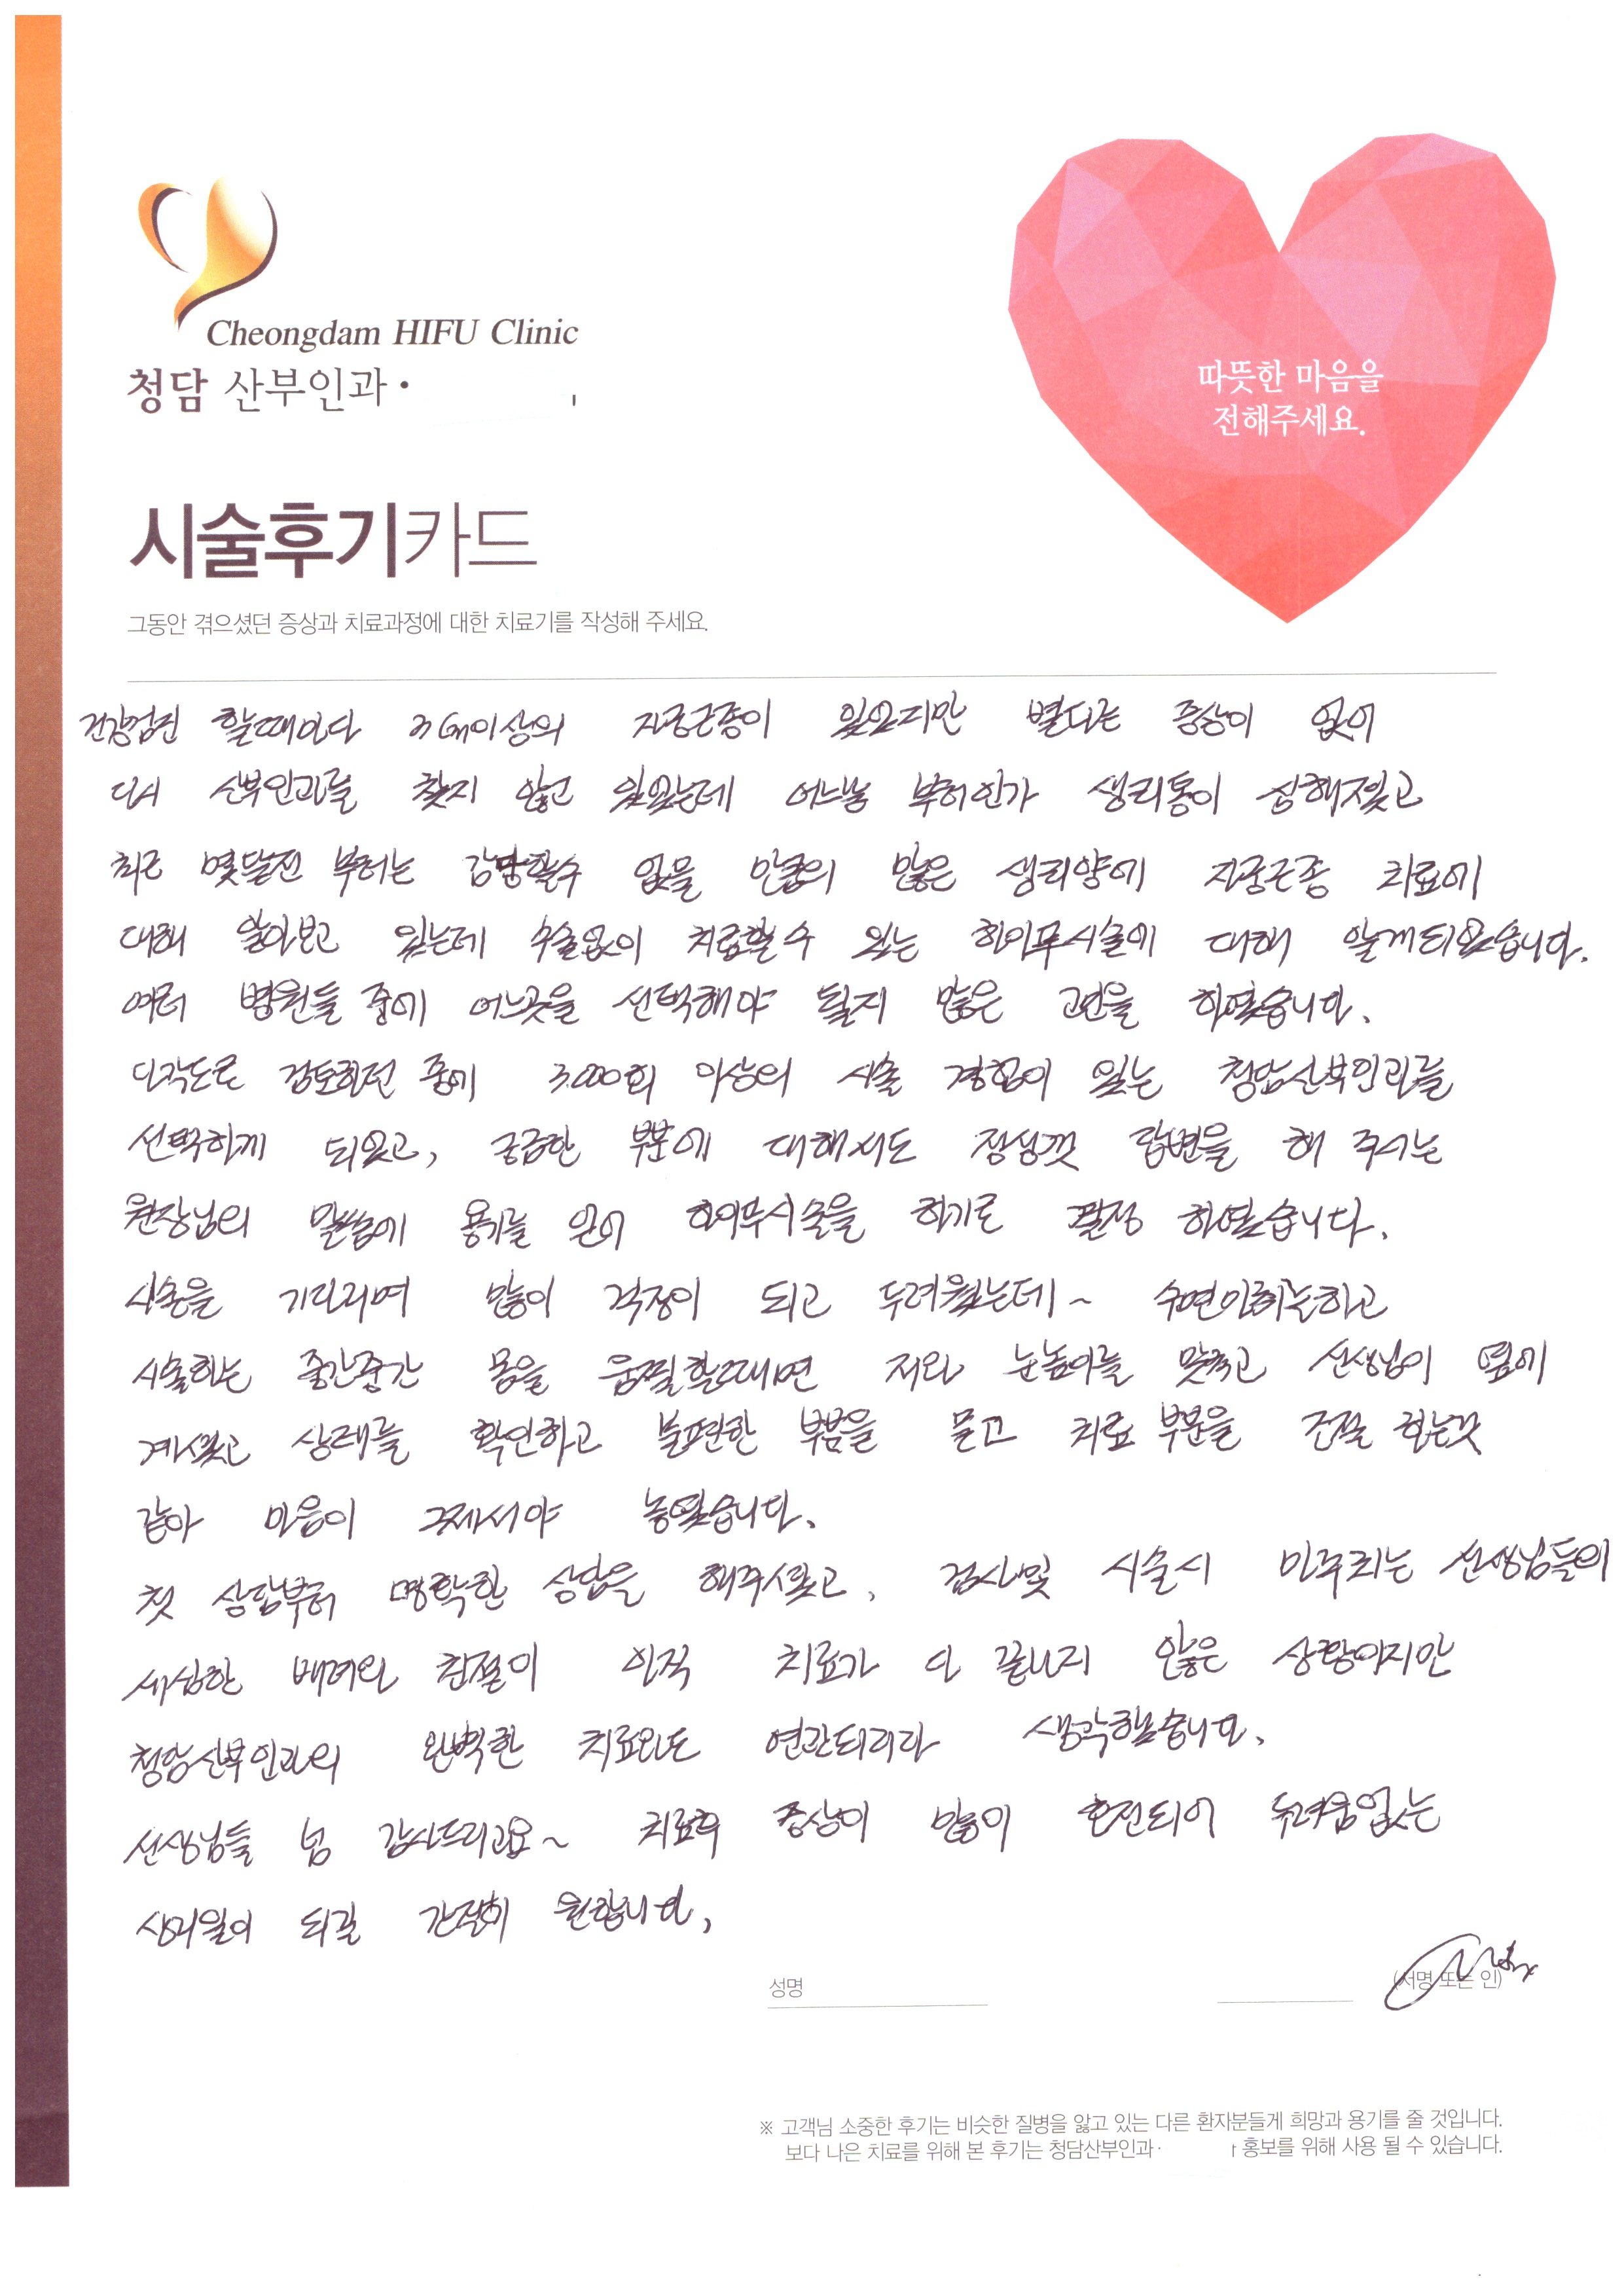 Cheongdam HIFU Clinic
청담 산부인과·
따뜻한 마음을
전해주세요.
시술후기카드
그동안 겪으셨던 증상과 치료과정에 대한 치료기를 작성해 주세요.
건강검진 할때마다 이상의 자궁근종이 있었지만 별다른 증상이 없어
다시 산부인과를 찾지 않고 있었는데 어느날 부터인가 생리통이 심해졌고
최근 몇달전 부터는 감당할수 없을 만큼의 많은 생리양에 자궁근종 치료에
대해 알아보고 있는데 수술없이 치료할 수 있는 하이푸시술에 대해 알게되었습니다.
여러 병원들 중에 어느곳을 선택해야 될지 많은 고민을 하였습니다.
다각도로 검토하던 중에 3.000회 이상의 시술 경험이 있는 청담산부인과를
선택하게 되었고, 궁금한 부분에 대해서도 정성껏 답변을 해 주시는
원장님의 말씀에 용기를 얻어 하이푸시술을 하기로 결정 하였습니다.
시술을 기다리며 많이 걱정이 되고 두려웠는데~ 수면마취는하고
시술하는 중간중간 몸을 움찔할때면 저와 눈높이를 맞추고 선생님이 옆에
계셨고 상태를 확인하고 불편한 부분을 묻고 치료 부분을 조절 하는것
같아 마음이 그제서야 놓였습니다.
첫 상담부터 명확한 상담을 해주셨고, 검사및 시술시 마주치는 선생님들의
세심한 배려와 친절이 아직 치료가 다 끝나지 않은 상황이지만
청담산부인과의 완벽한 치료와도 연관되리라 생각했습니다.
선생님들 넘 감사드리고요~ 치료후 증상이 많이 호전되어 두려움없는
생리일이 되길 간절히 원합니다,
성명
(서명 또는 인)
※ 고객님 소중한 후기는 비슷한 질병을 앓고 있는 다른 환자분들게 희망과 용기를 줄 것입니다.
보다 나은 치료를 위해 본 후기는 청담산부인과· 홍보를 위해 사용 될 수 있습니다.